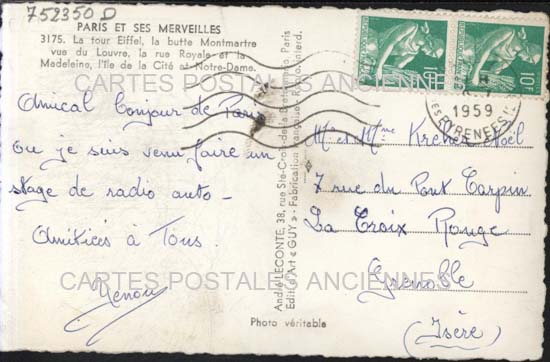 752350 D
PARIS ET SES MERVEILLES
3175. La tour Eiffel, la butte Montmartre
vue du Louvre, la rue Royale et la
Madeleine, l'île de la Cité et Notre-Dame.
CARTES POSTALES ANCIENNES
Amical bonjour de Paris
où je suis venu faire un
stage de radio auto-
Amitiés à Tous.
CARTES POSTALES ANCIENNES
André LECONTE, 38, rue Ste-Croix-de-la-Bretonnerie Paris
Editions d'Art "GUY" - Fabrication Française - Reprod. Interd.
Photo véritable
10F
1959
PYRENEES
Mr et Mme Noël
7 rue du Pont Carpin
La Croix Rouge
Grenoble
(Isère)